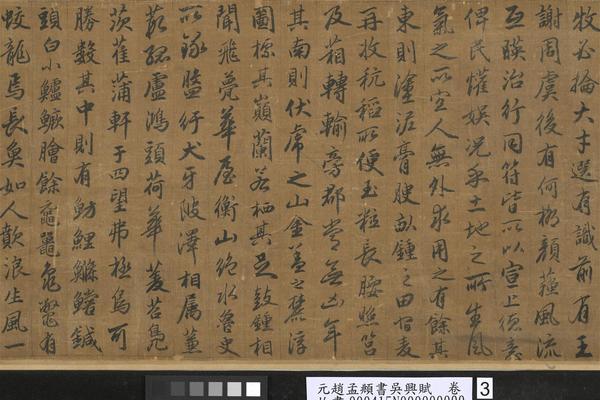 牧必掄大才選有識前有王
謝周虞後有何柳顏蘇風流
互暎治行同符皆所以宣上德意
俾民懽娛況乎土地之所生風
氣之所宜人無外求用之有餘其
東則塗泥膏腴畝鍾之田宿麥
再收秔稻所便玉粒長腰照筥
及箱轉輸旁郡常無凶年
其南則伏虎之山金蓋之麓浮
圖標其巔蘭若栖其足鼓鍾相
聞飛甍華屋衡山絕水魯史
所錄盤紆犬牙陂澤相属蒹
葭菰盧鴻頭荷華菱苕鳧
茨萑蒲軒于四望弗極烏可
勝數其中則有魴鯉鰷鱨鍼
頭白小鱸鱖膾餘黿鼉龜鼈有
蛟龍焉長魚如人歕浪生風一
元趙孟頫書吳興賦 卷
3